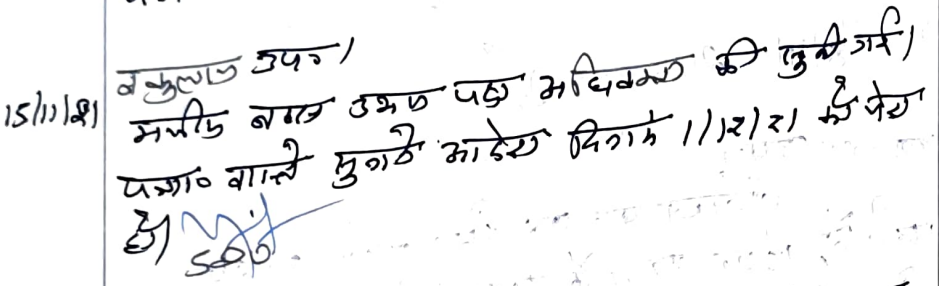 15/11/21
वकुलाय उप०।
मजीद बहस उभय पक्ष अधिवक्ता की सुनी गई।
पत्रा० वास्ते सुनाने आदेश दिनांक 1/12/21 को पेश
हो।